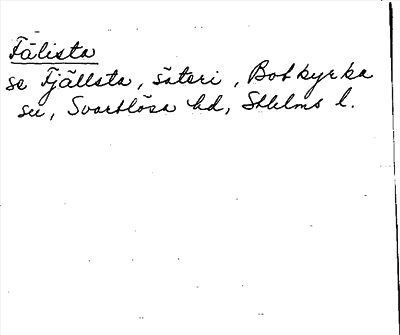 Fälista
se Fjällsta, säteri, Botkyrka
sn, Svartlösa hd, Sthlms l.